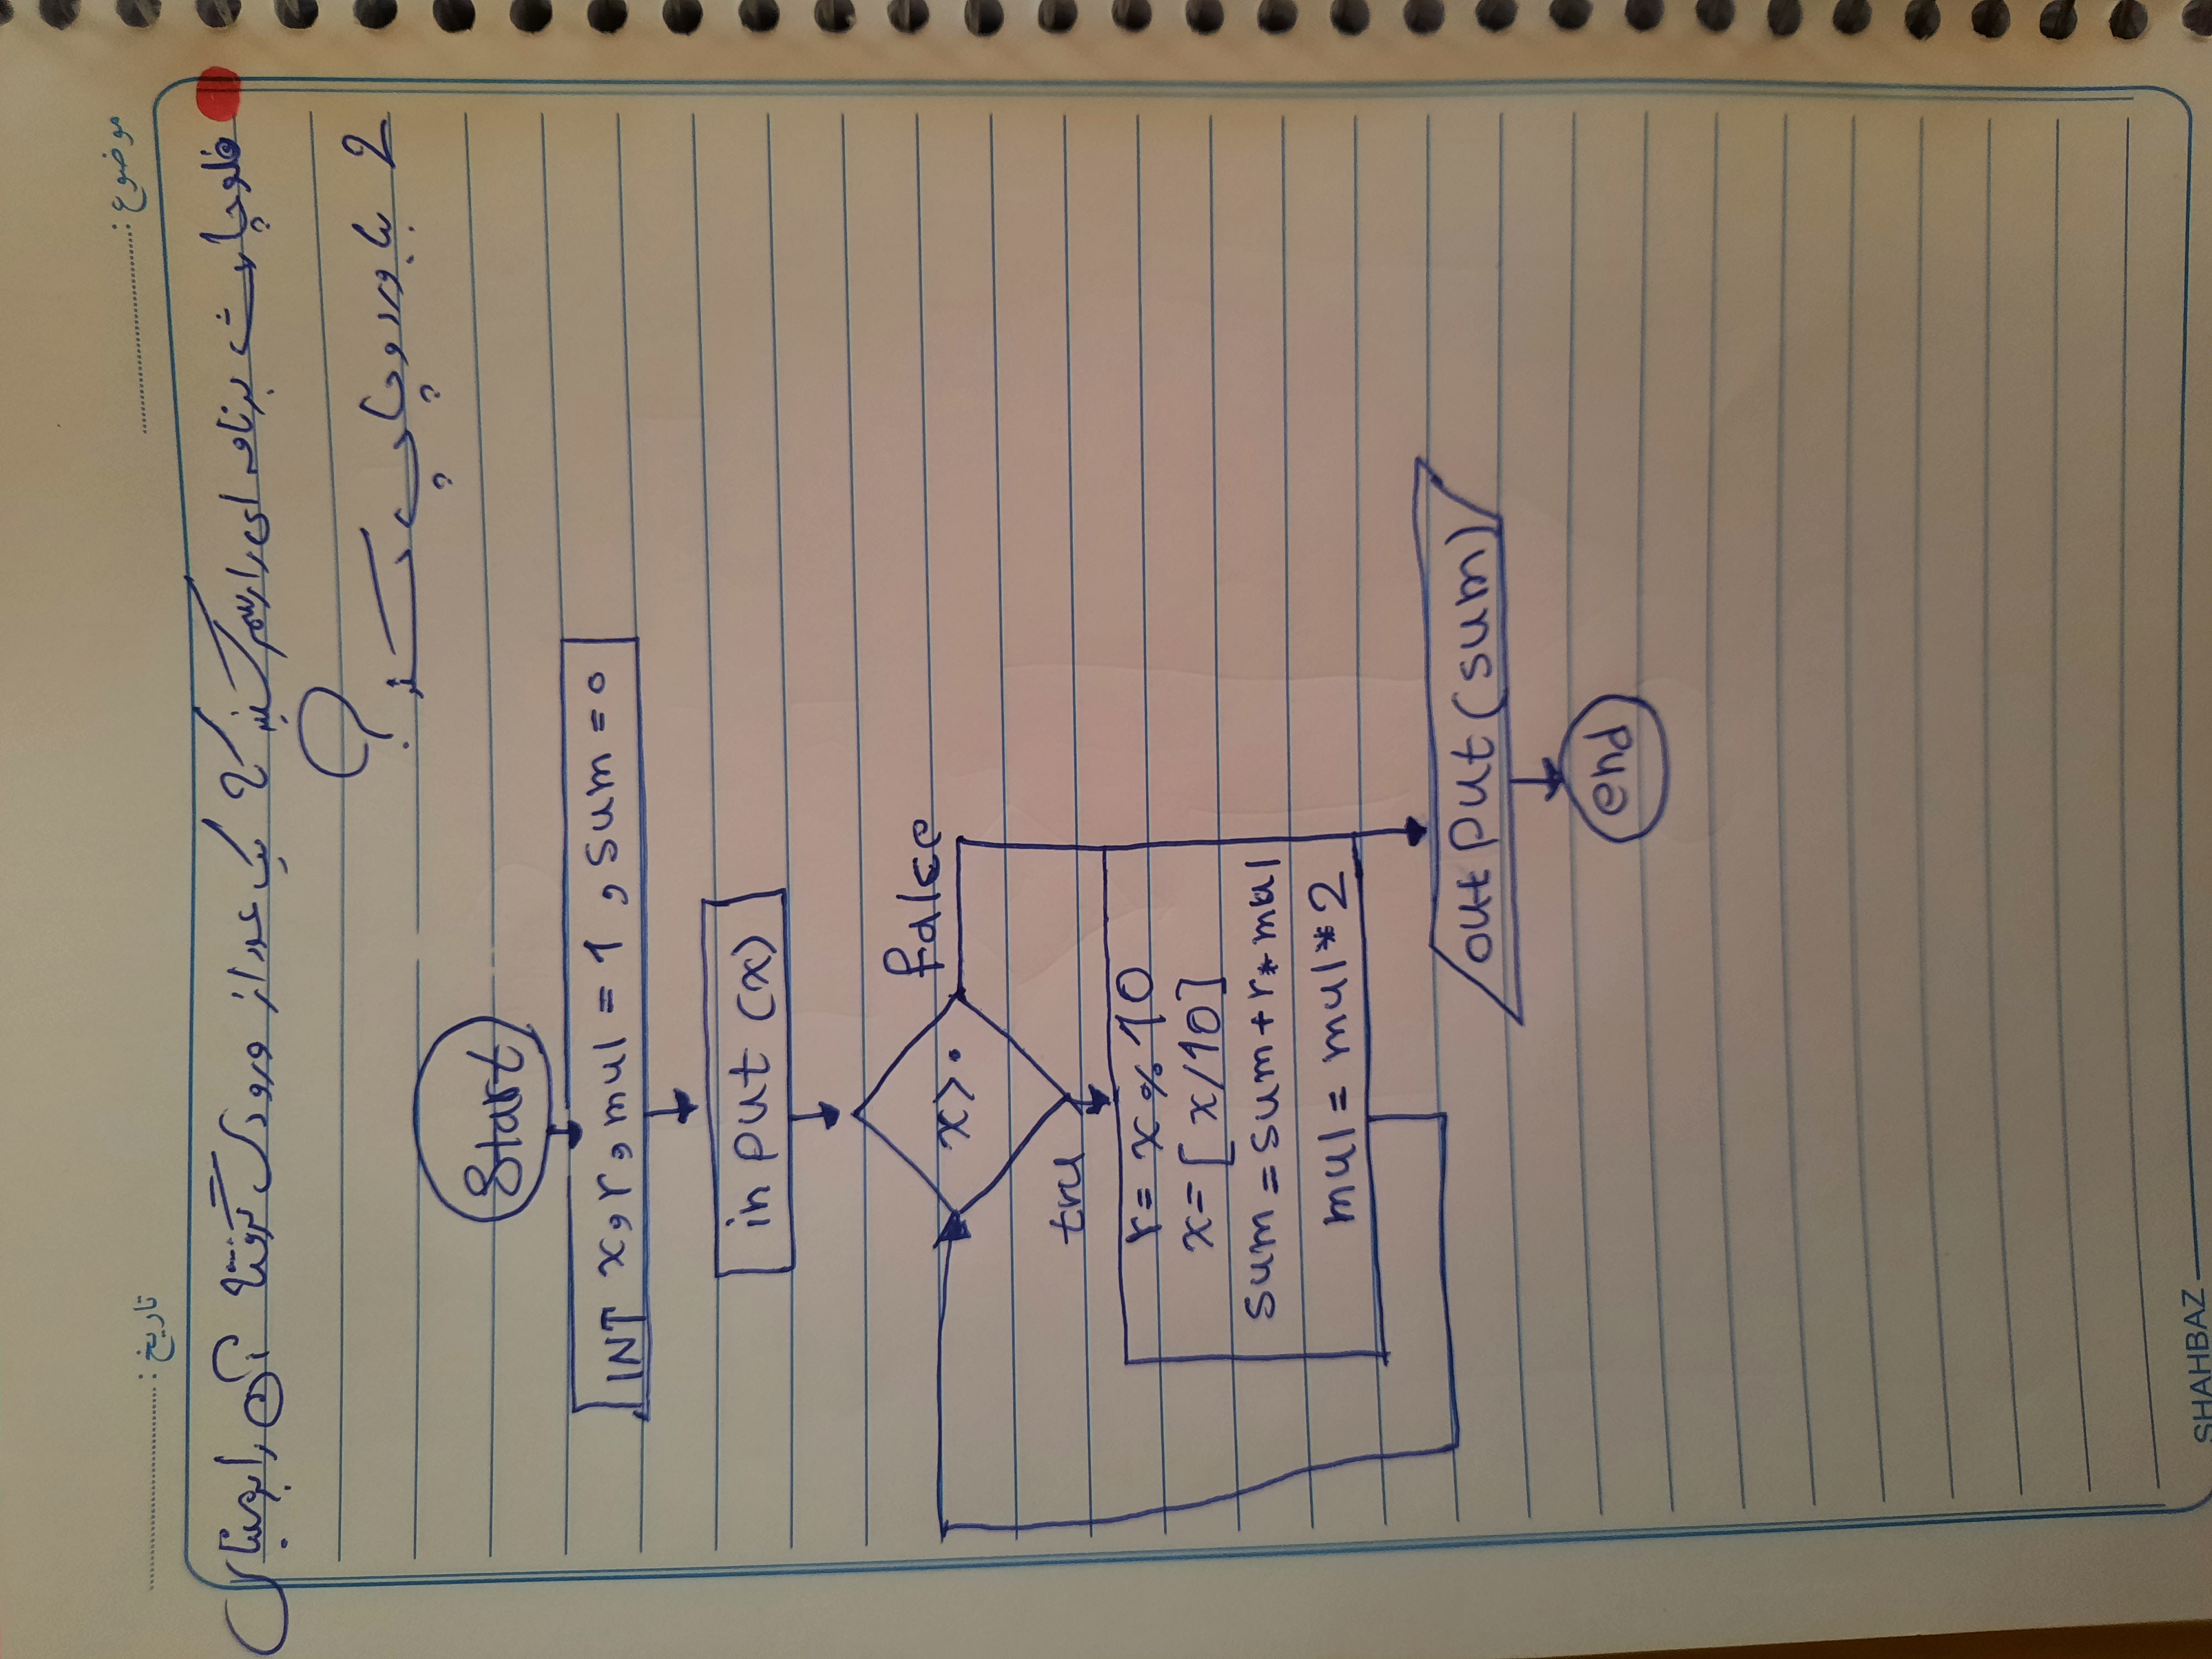 موضوع :
تاریخ :
فلوچارت برنامه ای را رسم کنید که یک عدد از ورودی گرفته آن را به مبنای
2 بیاورد و چاپ کند ؟
Start
INT x, r, mul = 1 , sum = 0
in put (x)
x > 0
false
tru
r = x % 10
x = [ x/10 ]
sum = sum + r * mul
mul = mul * 2
out put (sum)
end
SHAHBAZ